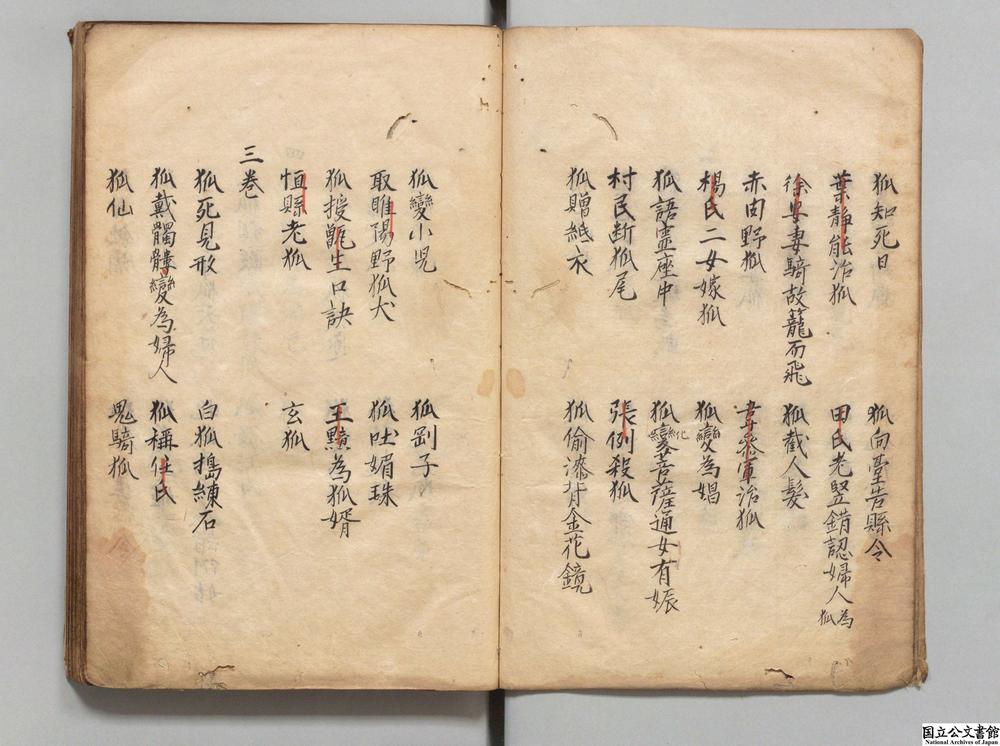 狐知死日　狐向臺告縣令
葉靜能治狐　田氏老竪錯認婦人為狐
徐安妻騎故籠而飛　狐截人髮
赤由野狐　韋參軍治狐
楊氏二女嫁狐　狐變為娼
狐語靈座中　狐變化菩薩通女有娠
村民断狐尾　張例殺狐
狐贈紙衣　狐偷漆背金花鏡
狐變小児　狐剛子
取睢陽野狐犬　狐吐媚珠
狐授甄生口訣　王黯為狐婿
恒縣老狐　玄狐
三卷
狐死見形　白狐搗練石
狐戴髑髏變為婦人　狐稱任氏
狐仙　鬼騎狐
国立公文書館
National Archives of Japan